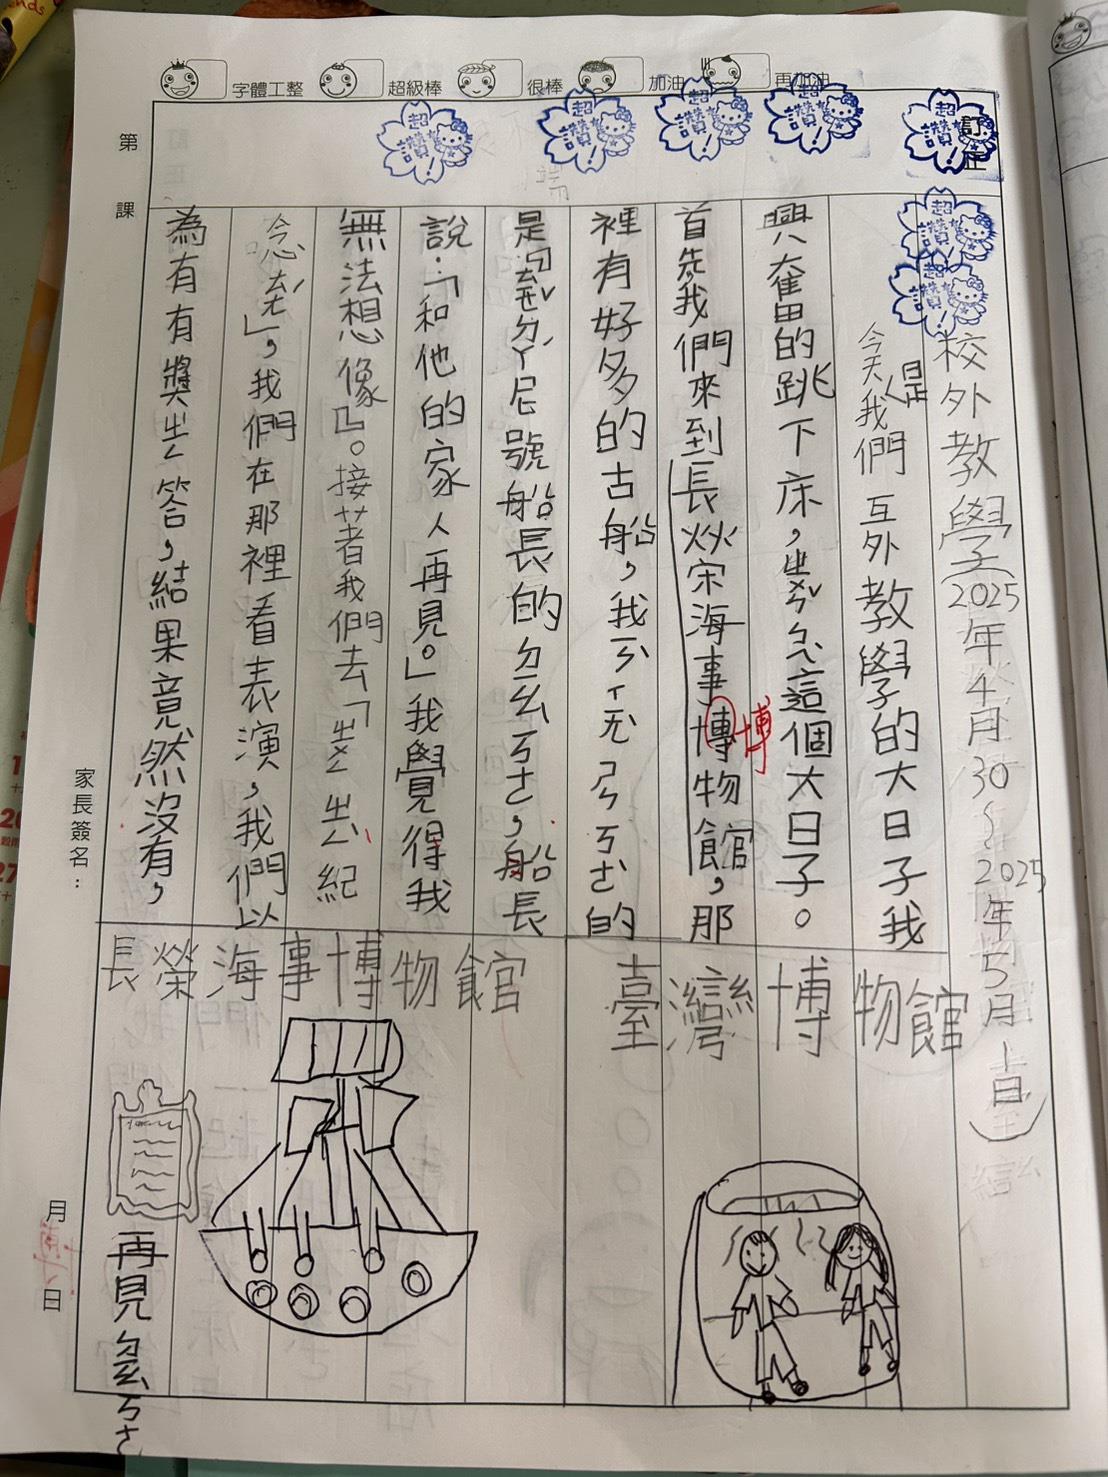 字體工整 超級棒 很棒 加油 再加油
訂正
超讚!
超讚!
超讚!
超讚!
超讚!
超讚!
超讚!
第 課
校外教學2025年4月30~2025年5月1日
今天是我們互外教學的大日子我
興奮的跳下床,ㄓㄨㄣˇㄅㄟˋ這個大日子。
首先我們來到長炏宋海事博物館,那
博
裡有好多的古船,我ㄎㄢˋ
是
號船長的ㄉㄠㄎㄜ,船長
說:「和他的家人再見。」我覺得我
無法想像』。接著我們去「
紀
念
」,我們在那裡看表演,我們以
為有有獎ㄓㄥ答,結果竟然沒有,
家長簽名:
月 日
臺灣博物館
長榮海事博物館
再見